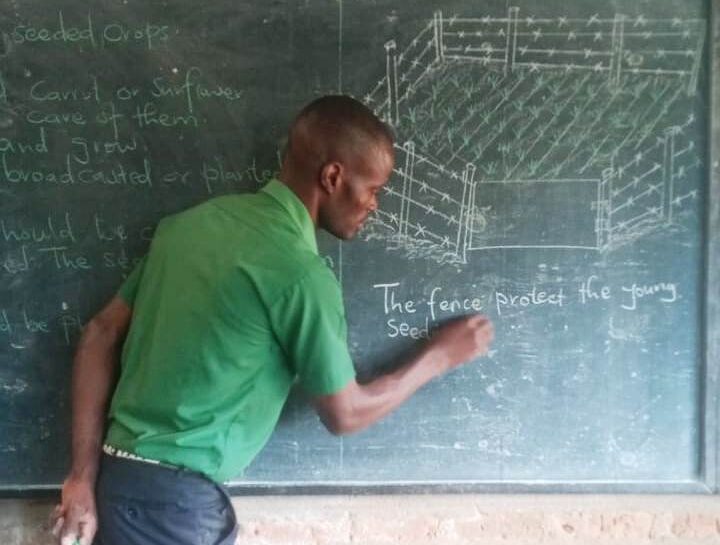 seeded Crops.
Carrot or Sunflower
care of them.
and grow.
broadcasted or planted
hould be c
The see
d be pl
The fence protect the young
Seed